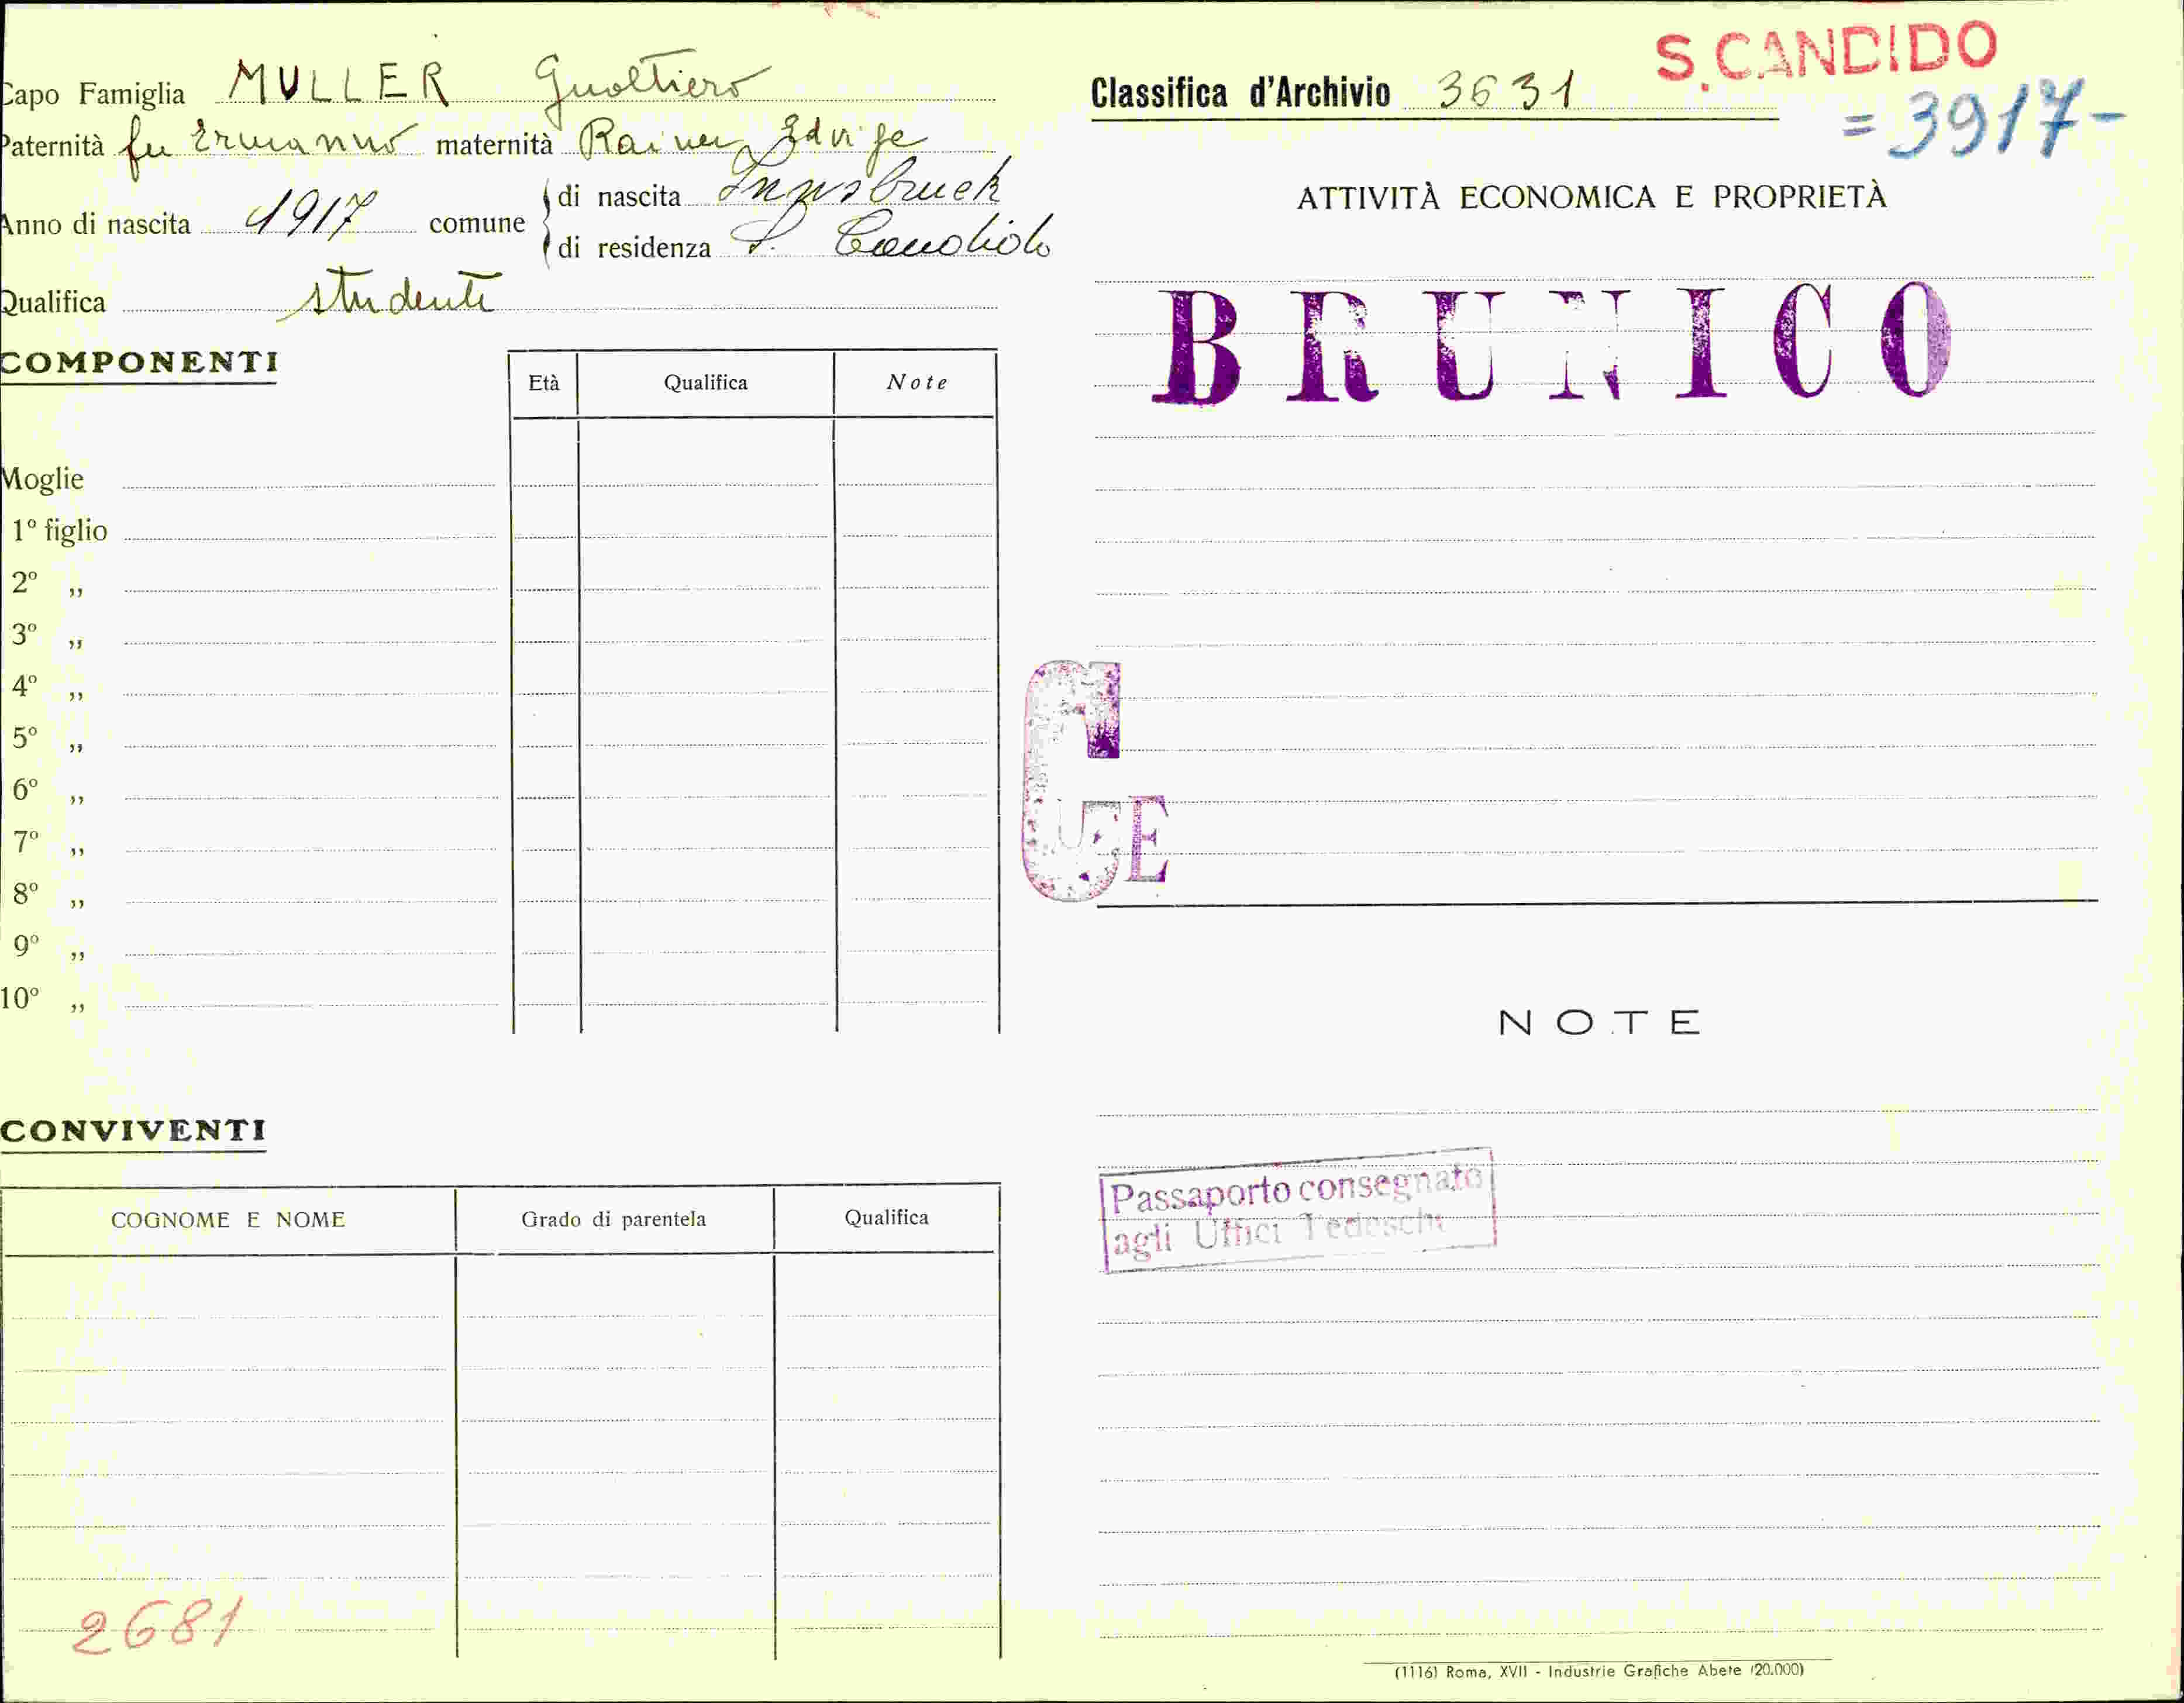 Capo Famiglia MULLER Gualtiero
Paternità fu Ermanno maternità Rainer Edvige
Anno di nascita 1917 comune di nascita Innsbruck
di residenza S. Candido
Qualifica studente
COMPONENTI
Età Qualifica Note
Moglie
1º figlio
2º „
3º „
4º „
5º „
6º „
7º „
8º „
9º „
10º „
CONVIVENTI
COGNOME E NOME Grado di parentela Qualifica
2681
S. CANDIDO
Classifica d'Archivio 3631
= 3917-
ATTIVITÀ ECONOMICA E PROPRIETÀ
BRUNICO
C E
NOTE
Passaporto consegnato
agli Uffici Tedeschi
(1116) Roma, XVII - Industrie Grafiche Abete (20.000)